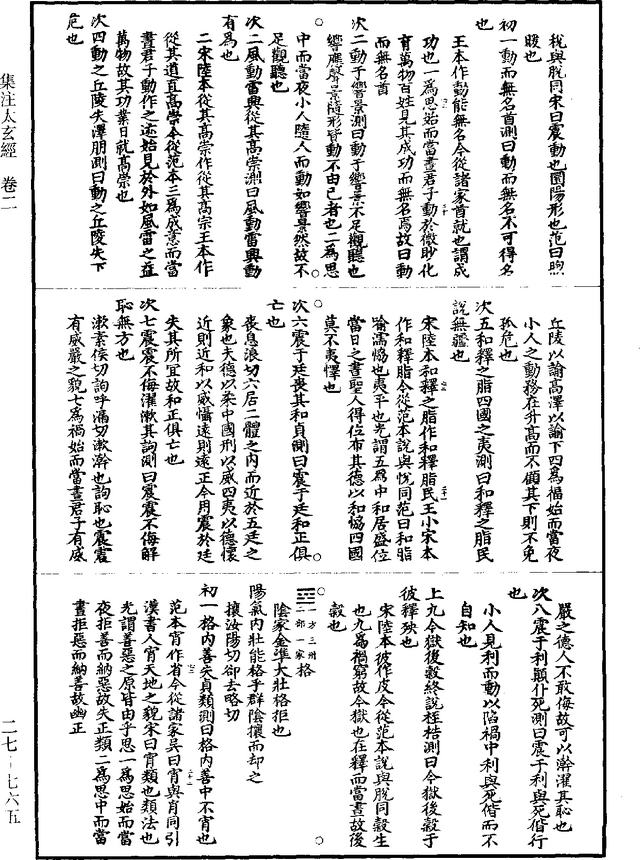 稅與脫同宋曰震動也圜陽形也范曰煦
暖也
初一動而無名首測曰動而無名不可得名
也
王本作動能無名今從諸家首就也謂成
功也一為思始而當晝君子動於微眇化
育萬物百姓見其成功而無名焉故曰動
而無名首
次二動于響景測曰動于響景不足觀聽也
響應聲景隨形皆動不由已者也二為思
中而當夜小人隨人而動如響景然故不
足觀聽也
次三風動雷興從其高崇測曰風動雷興動
有為也
二宋陸本從其高崇作從其高宗王本作
從其道直高崇今從范本三為成意而當
晝君子動作之迹始見於外如風雷之益
萬物故其功業日就高崇也
次四動之丘陵失澤朋測曰動之丘陵失下
危也
丘陵以諭高澤以諭下四為福始而當夜
小人之動務在升高而不顧其下則不免
孤危也
次五和釋之脂四國之夷測曰和釋之脂民
說無疆也
宋陸本和釋之脂作和釋脂民王小宋本
作和釋脂今從范本說與悅同范曰和脂
喻濡恊也夷平也光謂五為中和居盛位
當日之晝聖人得位布其德以和恊四國
莫不夷懌也
次六震于廷喪其和貞測曰震于廷和正俱
亡也
喪息浪切六居二體之內而近於五廷之
象也夫德以柔中國刑以威四夷以德懷
近則近和以威懾遠則遠正今用震於廷
失其所宜故和正俱亡也
次七震震不侮濯漱其訽測曰震震不侮解
恥無方也
漱素侯切訽呼漏切漱澣也訽恥也震震
有威嚴之貌七為禍始而當晝君子有威
嚴之德人不敢侮故可以澣濯其恥也
次八震于利顚仆死測曰震于利與死偕行
也
小人見利而動以陷禍中利與死偕而不
自知也
上九今獄後穀終說桎梏測曰今獄後穀于
彼釋殃也
宋陸本彼作皮今從范本說與脫同穀生
也九為禍窮故今獄也在釋而當晝故後
穀也
䷡一方三州二部一家格
陰家金準大壯格拒也
陽氣內壯能格乎群陰攘而却之
攘汝陽切却去略切
初一格內善失貞類測曰格內善中不宵也
范本宵作省今從諸家吳曰宵與肖同引
漢書人宵天地之貌宋曰宵類也類法也
光謂善惡之原皆由乎思一為思始而當
夜拒善而納惡故失正類二為思中而當
晝拒惡而納善故幽正
集注太玄經 卷二
二七-七六五